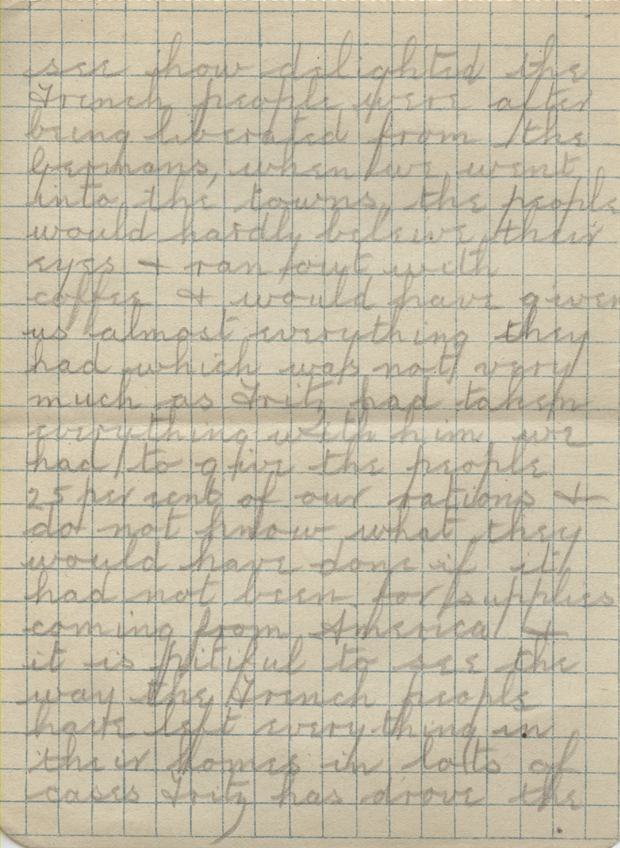 see how delighted the
French people were after
being liberated from the
Germans, when we went
into the towns the people
would hardly beleive their
eyes & ran out with
coffee & would have given
us almost everything they
had which was not very
much as Fritz had taken
everything with him we
had to give the people
25 per cent of our rations &
do not know what they
would have done if it
had not been for supplies
coming from America &
it is pitiful to see the
way the French people
have left everything in
their homes in lotts of
cases Fritz has drove the